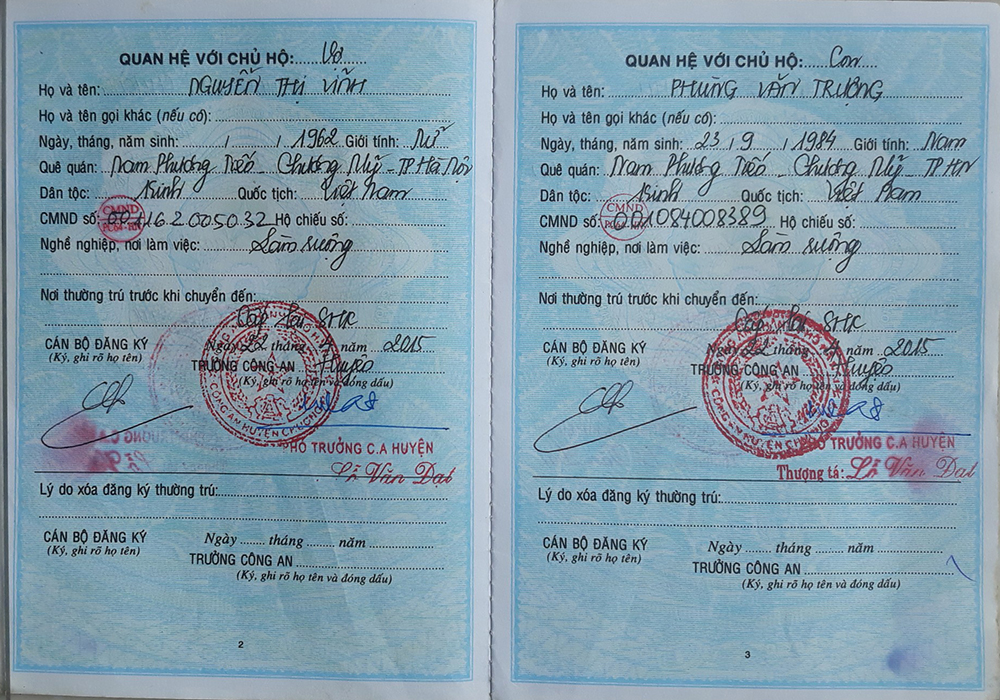 QUAN HỆ VỚI CHỦ HỘ: Vợ
Họ và tên: NGUYỄN THỊ VĨNH
Họ và tên gọi khác (nếu có):
Ngày, tháng, năm sinh: / / 1962 Giới tính: Nữ
Quê quán: Nam Phương Tiến - Chương Mỹ - TP Hà Nội
Dân tộc: Kinh Quốc tịch: Việt Nam
CMND
PC64-HN
CMND số: 001162005032 Hộ chiếu số:
Nghề nghiệp, nơi làm việc: Làm ruộng
Nơi thường trú trước khi chuyển đến:
Cấp lại SHK
CÁN BỘ ĐĂNG KÝ Ngày 22 tháng năm 2015
(Ký, ghi rõ họ tên) TRƯỞNG CÔNG AN Huyện
(Ký, ghi rõ họ tên và đóng dấu)
CÔNG AN HUYỆN CHƯƠNG
PHÓ TRƯỞNG C.A HUYỆN
Lê Văn Đạt
Lý do xóa đăng ký thường trú:
CÁN BỘ ĐĂNG KÝ Ngày tháng năm
(Ký, ghi rõ họ tên) TRƯỞNG CÔNG AN
(Ký, ghi rõ họ tên và đóng dấu)
2
QUAN HỆ VỚI CHỦ HỘ: Con
Họ và tên: PHÙNG VĂN TRƯỜNG
Họ và tên gọi khác (nếu có):
Ngày, tháng, năm sinh: 23 / 9 / 1984 Giới tính: Nam
Quê quán: Nam Phương Tiến - Chương Mỹ - TP HN
Dân tộc: Kinh Quốc tịch: Việt Nam
CMND
PC64-HN
CMND số: 001084008389 Hộ chiếu số:
Nghề nghiệp, nơi làm việc: Làm ruộng
Nơi thường trú trước khi chuyển đến:
Cấp lại SHK
CÁN BỘ ĐĂNG KÝ Ngày 22 tháng năm 2015
(Ký, ghi rõ họ tên) TRƯỞNG CÔNG AN Huyện
(Ký, ghi rõ họ tên và đóng dấu)
CÔNG AN HUYỆN CHƯƠNG
PHÓ TRƯỞNG C.A HUYỆN
Thượng tá: Lê Văn Đạt
Lý do xóa đăng ký thường trú:
CÁN BỘ ĐĂNG KÝ Ngày tháng năm
(Ký, ghi rõ họ tên) TRƯỞNG CÔNG AN
(Ký, ghi rõ họ tên và đóng dấu)
3